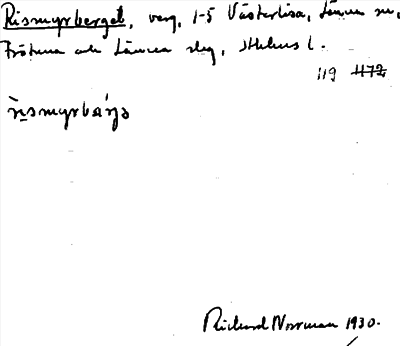 Rismyrberget, berg, 1-5 Västerlisa, Länna sn,
Frötuna och Länna slg, Sthlms l.
119 1172
r̀ismyrbærjə
Richard Norrman 1930.